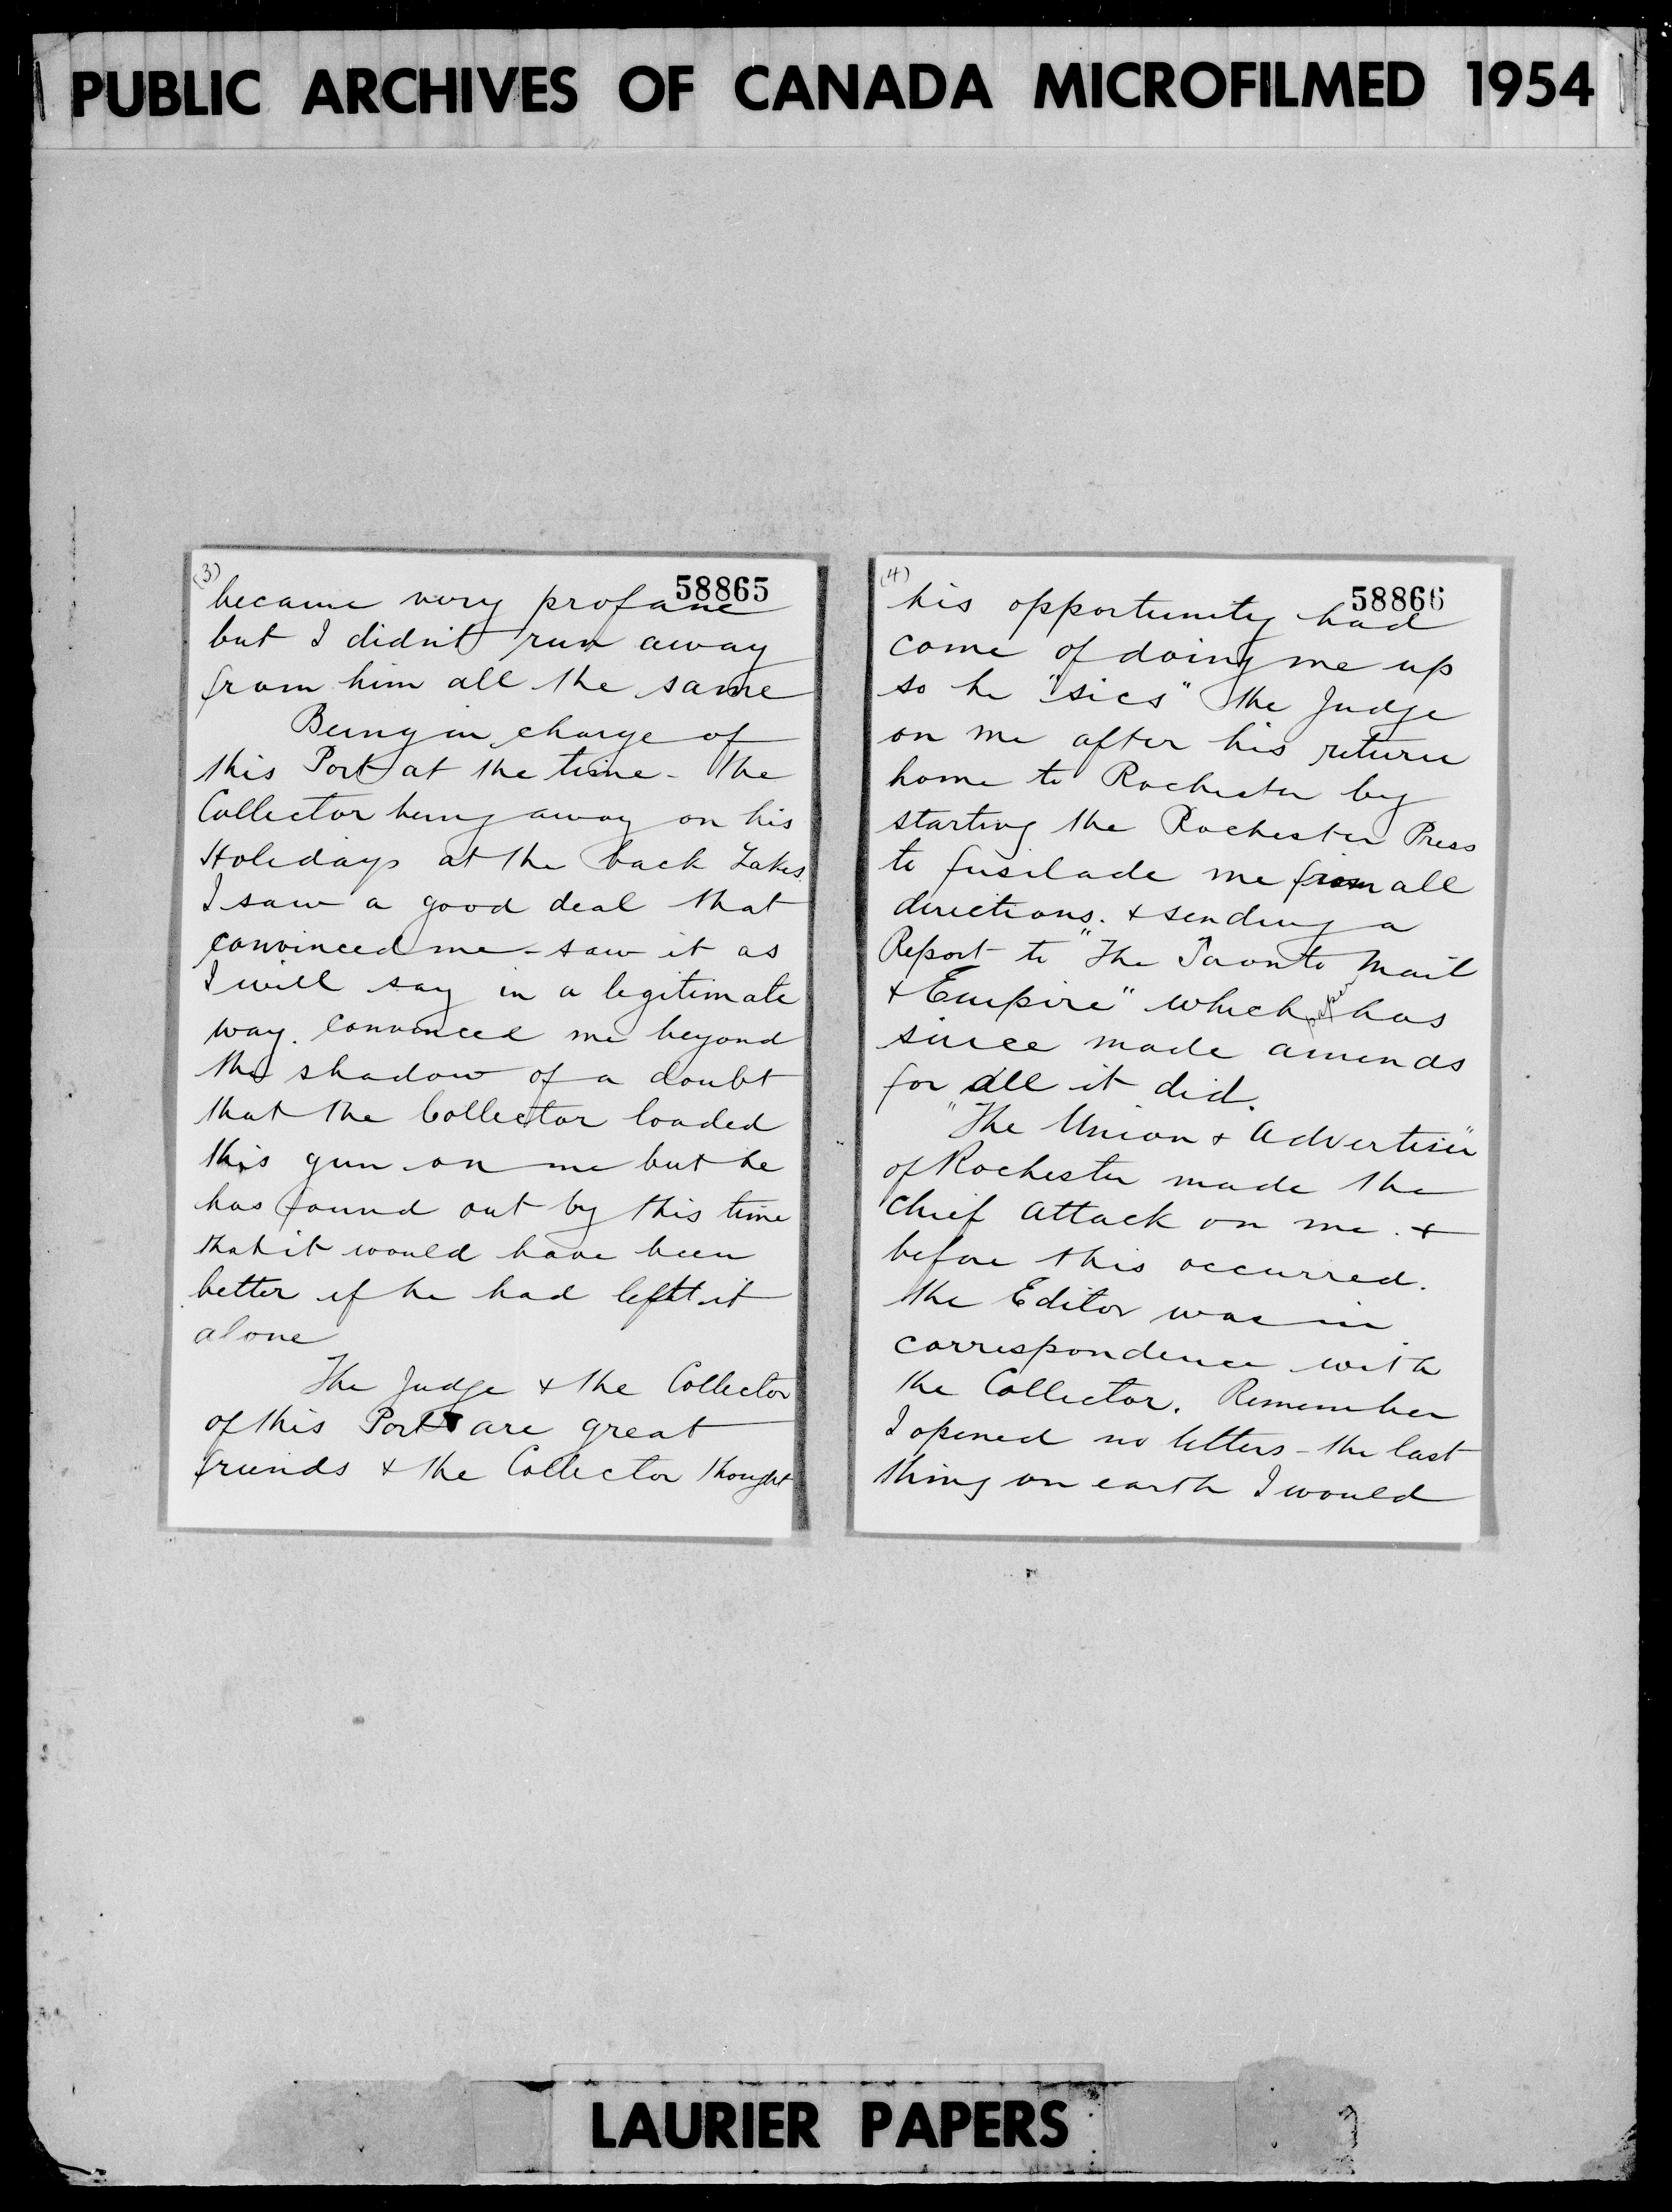 PUBLIC ARCHIVES OF CANADA MICROFILMED 1954
(3)
58865
became very profane
but I didn't run away
from him all the same
Being in charge of
this Port at the time - The
Collector being away on his
Holidays at the back Lakes.
I saw a good deal that
convinced me - saw it as
I will say in a legitimate
way. convinced me beyond
the shadow of a doubt
that the Collector loaded
this gun on me but he
has found out by this time
that it would have been
better if he had left it
alone
The Judge & the Collector
of this Port are great
friends & the Collector thought
(4)
58866
his opportunity had
come of doing me up
so he "sics" the Judge
on me after his return
home to Rochester by
starting the Rochester Press
to fusilade me from all
directions. & sending a
Report to "The Toronto Mail
& Empire" which paper has
since made amends
for all it did.
"The Union & Advertiser"
of Rochester made the
Chief attack on me. &
before this occurred.
the Editor was in
correspondence with
the Collector. Remember
I opened no letters - the last
thing on earth I would
LAURIER PAPERS